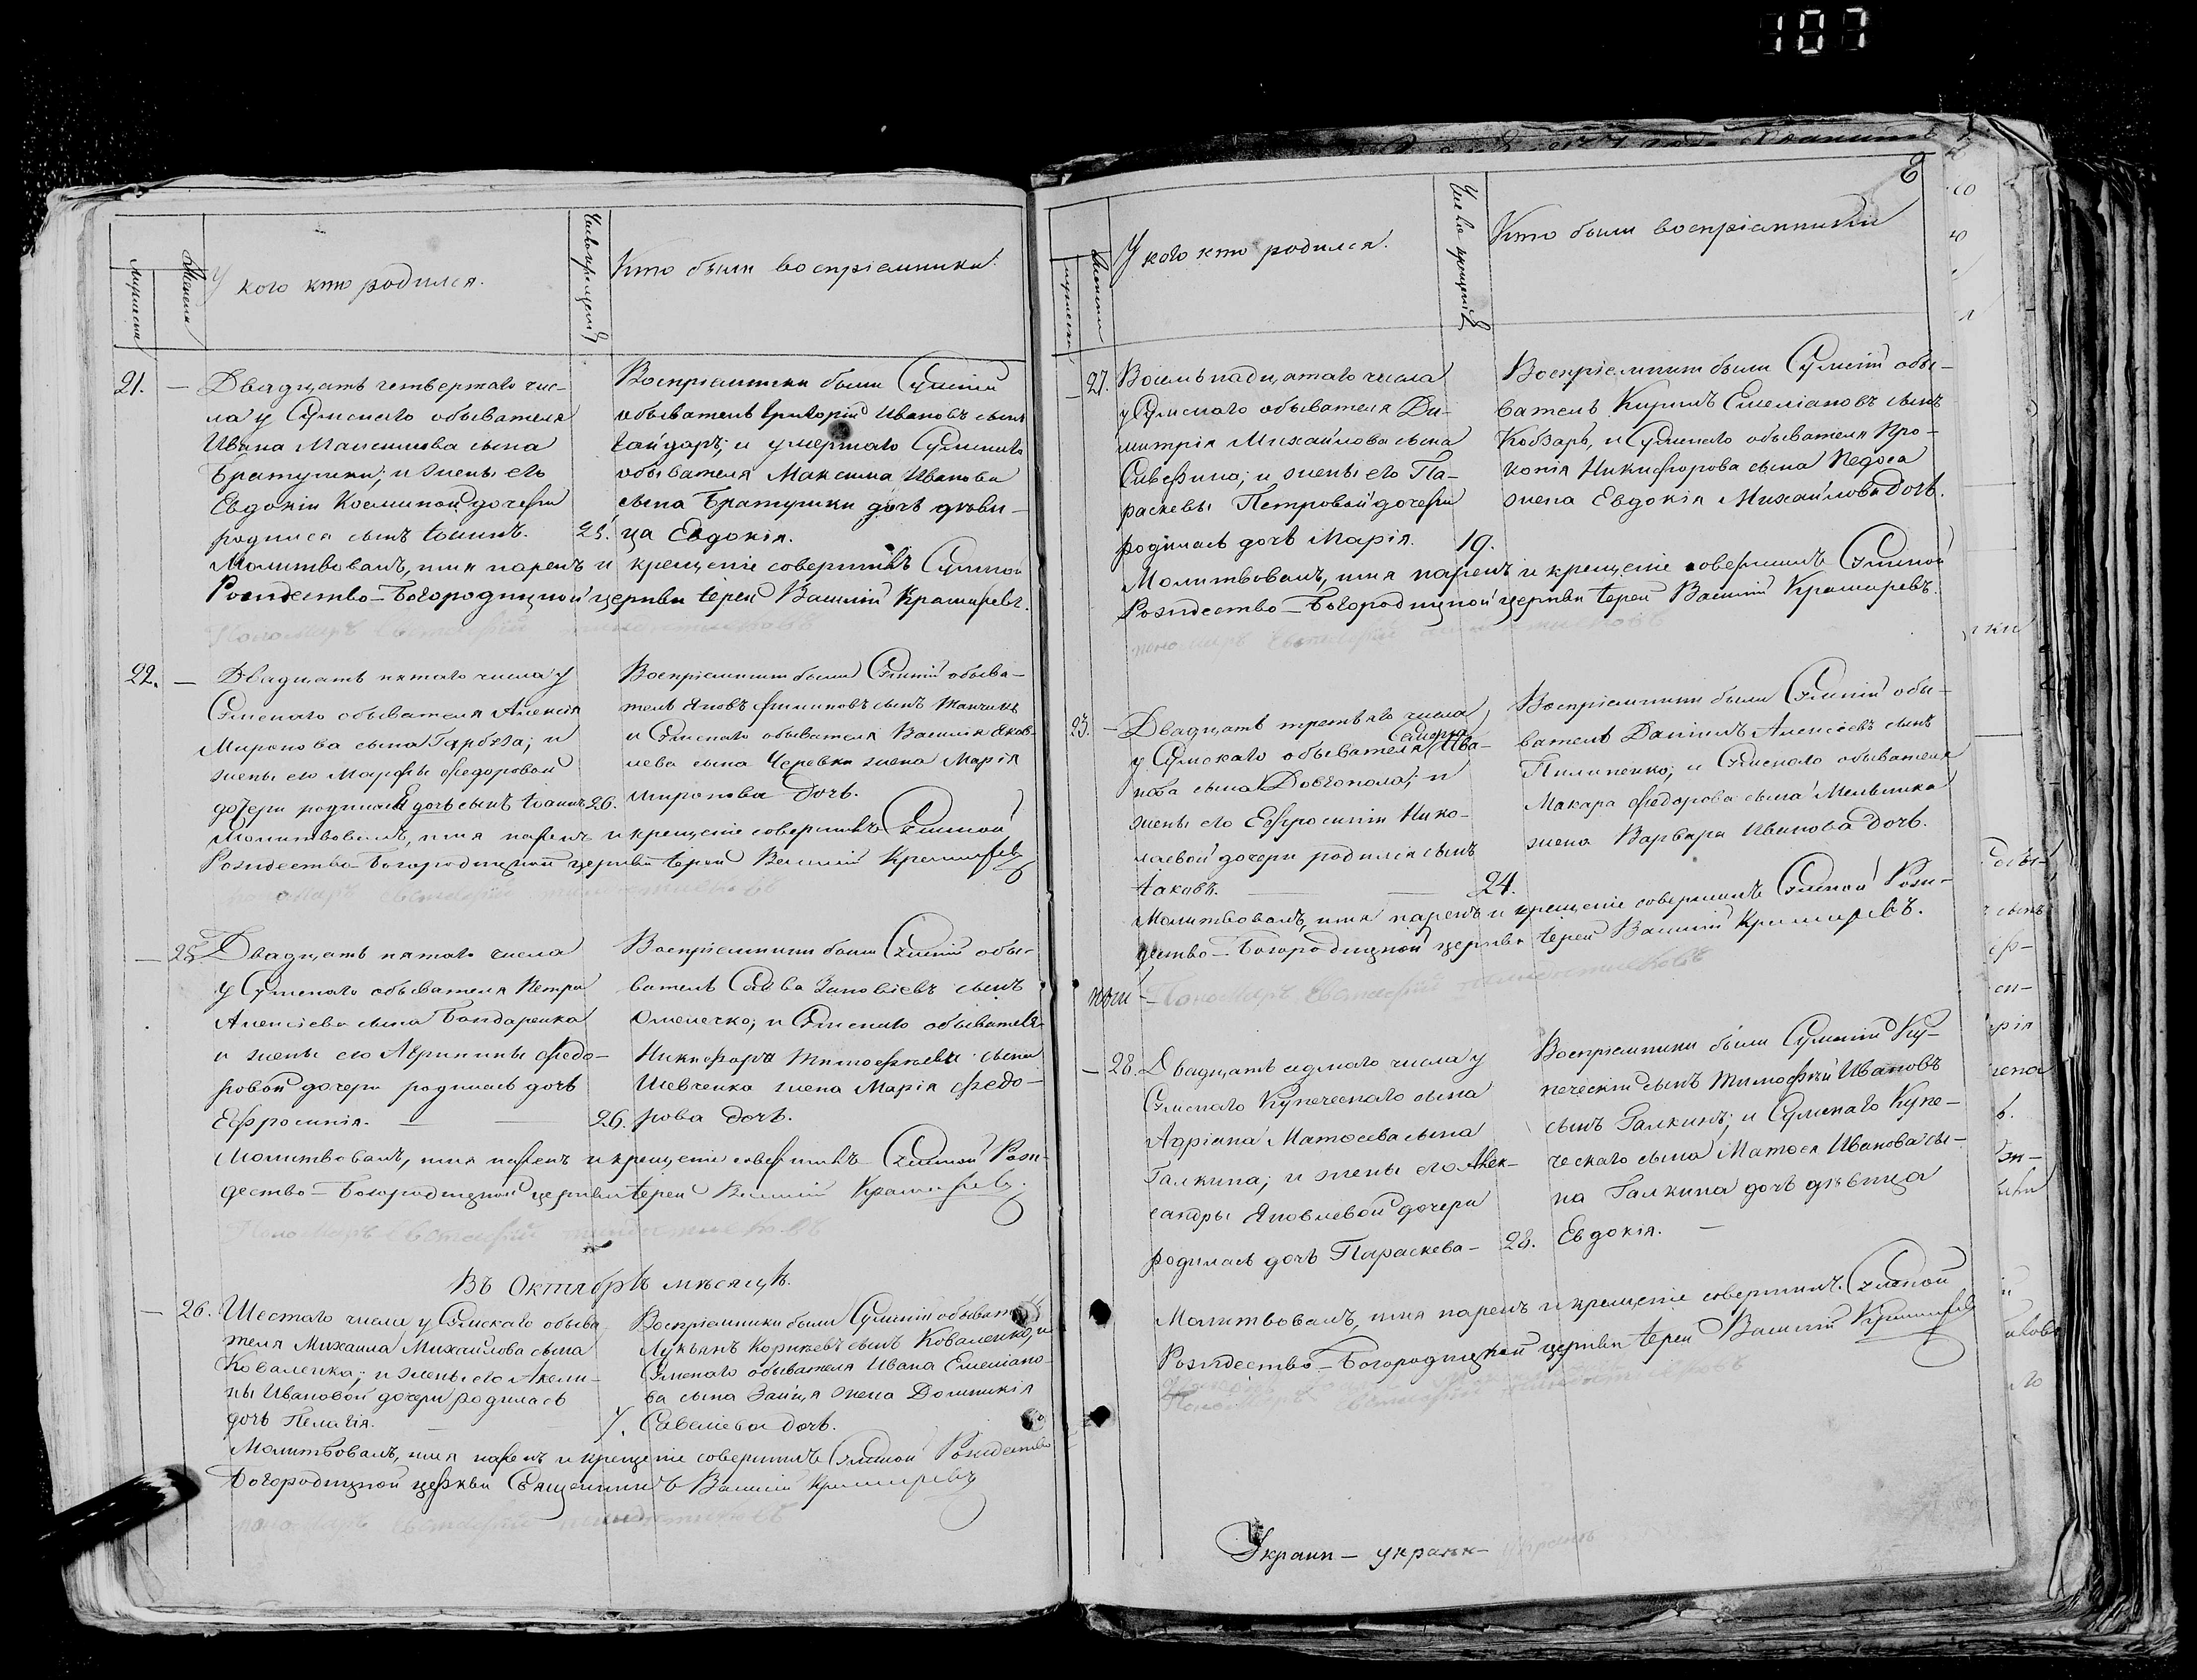 107
Мужеска
Женска
У кого кто родился.
Число крещенія
Кто были воспріемники.
21. — Двадцать четвертаго чис-
ла у Сумскаго обывателя
Ивана Максимова сына
Братушки; и жены его
Евдокіи Косминой дочери
родился сынъ Іоаннъ. 25.
Воспріемники были Сумскій
обыватель Григорій Ивановъ сынъ
Гайдаръ; и умершаго Сумскаго
обывателя Максима Иванова
сына Братушки дочь дѣви-
ца Евдокія.
Молитвовалъ, имя нарекъ и крещеніе совершилъ Сумской
Рождество-Богородицкой церкви Іерей Василій
Пономарь
22. — Двадцать пятаго числа у
Сумскаго обывателя Алексія
Миронова сына Гарбуза; и
жены его Марфы Федоровой
дочери родился сынъ Іоаннъ 26.
Воспріемники были Сумскій обыва-
тель Яковъ Филиповъ сынъ
и Сумскаго обывателя Василія Яков-
лева сына Черевка жена Марія
Миронова дочь.
Молитвовалъ, имя нарекъ и крещеніе совершилъ Сумской
Рождество-Богородицкой церкви Іерей Василій
Пономарь
— 25. Двадцать пятаго числа
у Сумскаго обывателя Петра
Алексіева сына Бондаренка
и жены его Агрипины Федо-
ровой дочери родилась дочь
Ефросинія. — — 26.
Воспріемники были Сумскій обы-
ватель Савва Зиновіевъ сынъ
Омелечко; и Сумскаго обывателя
Никифора Тимофѣева сына
Шевченка жена Марія Федо-
рова дочь.
Молитвовалъ, имя нарекъ и крещеніе совершилъ Сумской Рож-
дество-Богородицкой церкви Іерей Василій
Пономарь
Въ Октябрѣ мѣсяцѣ.
— 26. Шестаго числа у Сумскаго обыва
теля Михаила Михайлова сына
Коваленка; и жены его Акели-
ны Ивановой дочери родилась
дочь Пелагія. — 7.
Воспріемники были Сумскій обыват
Лукьянъ Корнѣевъ сынъ Коваленко, и
Сумскаго обывателя Ивана Емеліано-
ва сына Зайця жена Домникія
Савеліева дочь.
Молитвовалъ, имя нарекъ и крещеніе совершилъ Сумской Рождество
Богородицкой церкви Священникъ Василій
У кого кто родился.
Число крещенія
Кто были воспріемники
— 27. Восемьнадцатаго числа
у Сумскаго обывателя Ди-
митрія Михайлова сына
и жены его Па-
раскевы Петровой дочери
родилась дочь Марія. 19.
Воспріемники были Сумскій обы-
ватель Кирилъ Емеліановъ сынъ
Кобзарь, и Сумскаго обывателя Про-
копія Никифорова сына
жена Евдокія Михайлова дочь.
Молитвовалъ, имя нарекъ и крещеніе совершилъ Сумской
Рождество-Богородицкой церкви Іерей Василій
23. — Двадцать третьяго числа
у Сумскаго обывателя Ива-
нова сына Довгопола; и
жены его Ефросиніи Нико-
лаевой дочери родился сынъ
Іаковъ. — — 24.
Воспріемники были Сумскій обы-
ватель Даніилъ Алексіевъ сынъ
Пилипенко; и Сумскаго обывателя
Макара Федорова сына Мельника
жена Варвара Иванова дочь.
Молитвовалъ, имя нарекъ и крещеніе совершилъ Сумской Рож-
дество-Богородицкой церкви Іерей Василій
Пономарь
— 28. Двадцать седмаго числа у
Сумскаго Купеческаго сына
Адріана Матфеева сына
Галкина; и жены его Алек-
сандры Яковлевой дочери
родилась дочь Параскева — 28.
Воспріемники были Сумскій Ку-
печескій сынъ Тимофѣй Ивановъ
сынъ Галкинъ; и Сумскаго Купе-
ческаго сына Матфея Иванова сы-
на Галкина дочь дѣвица
Евдокія. —
Молитвовалъ, имя нарекъ и крещеніе совершилъ Сумской
Рождество-Богородицкой церкви Іерей Василій
Украин — украин —